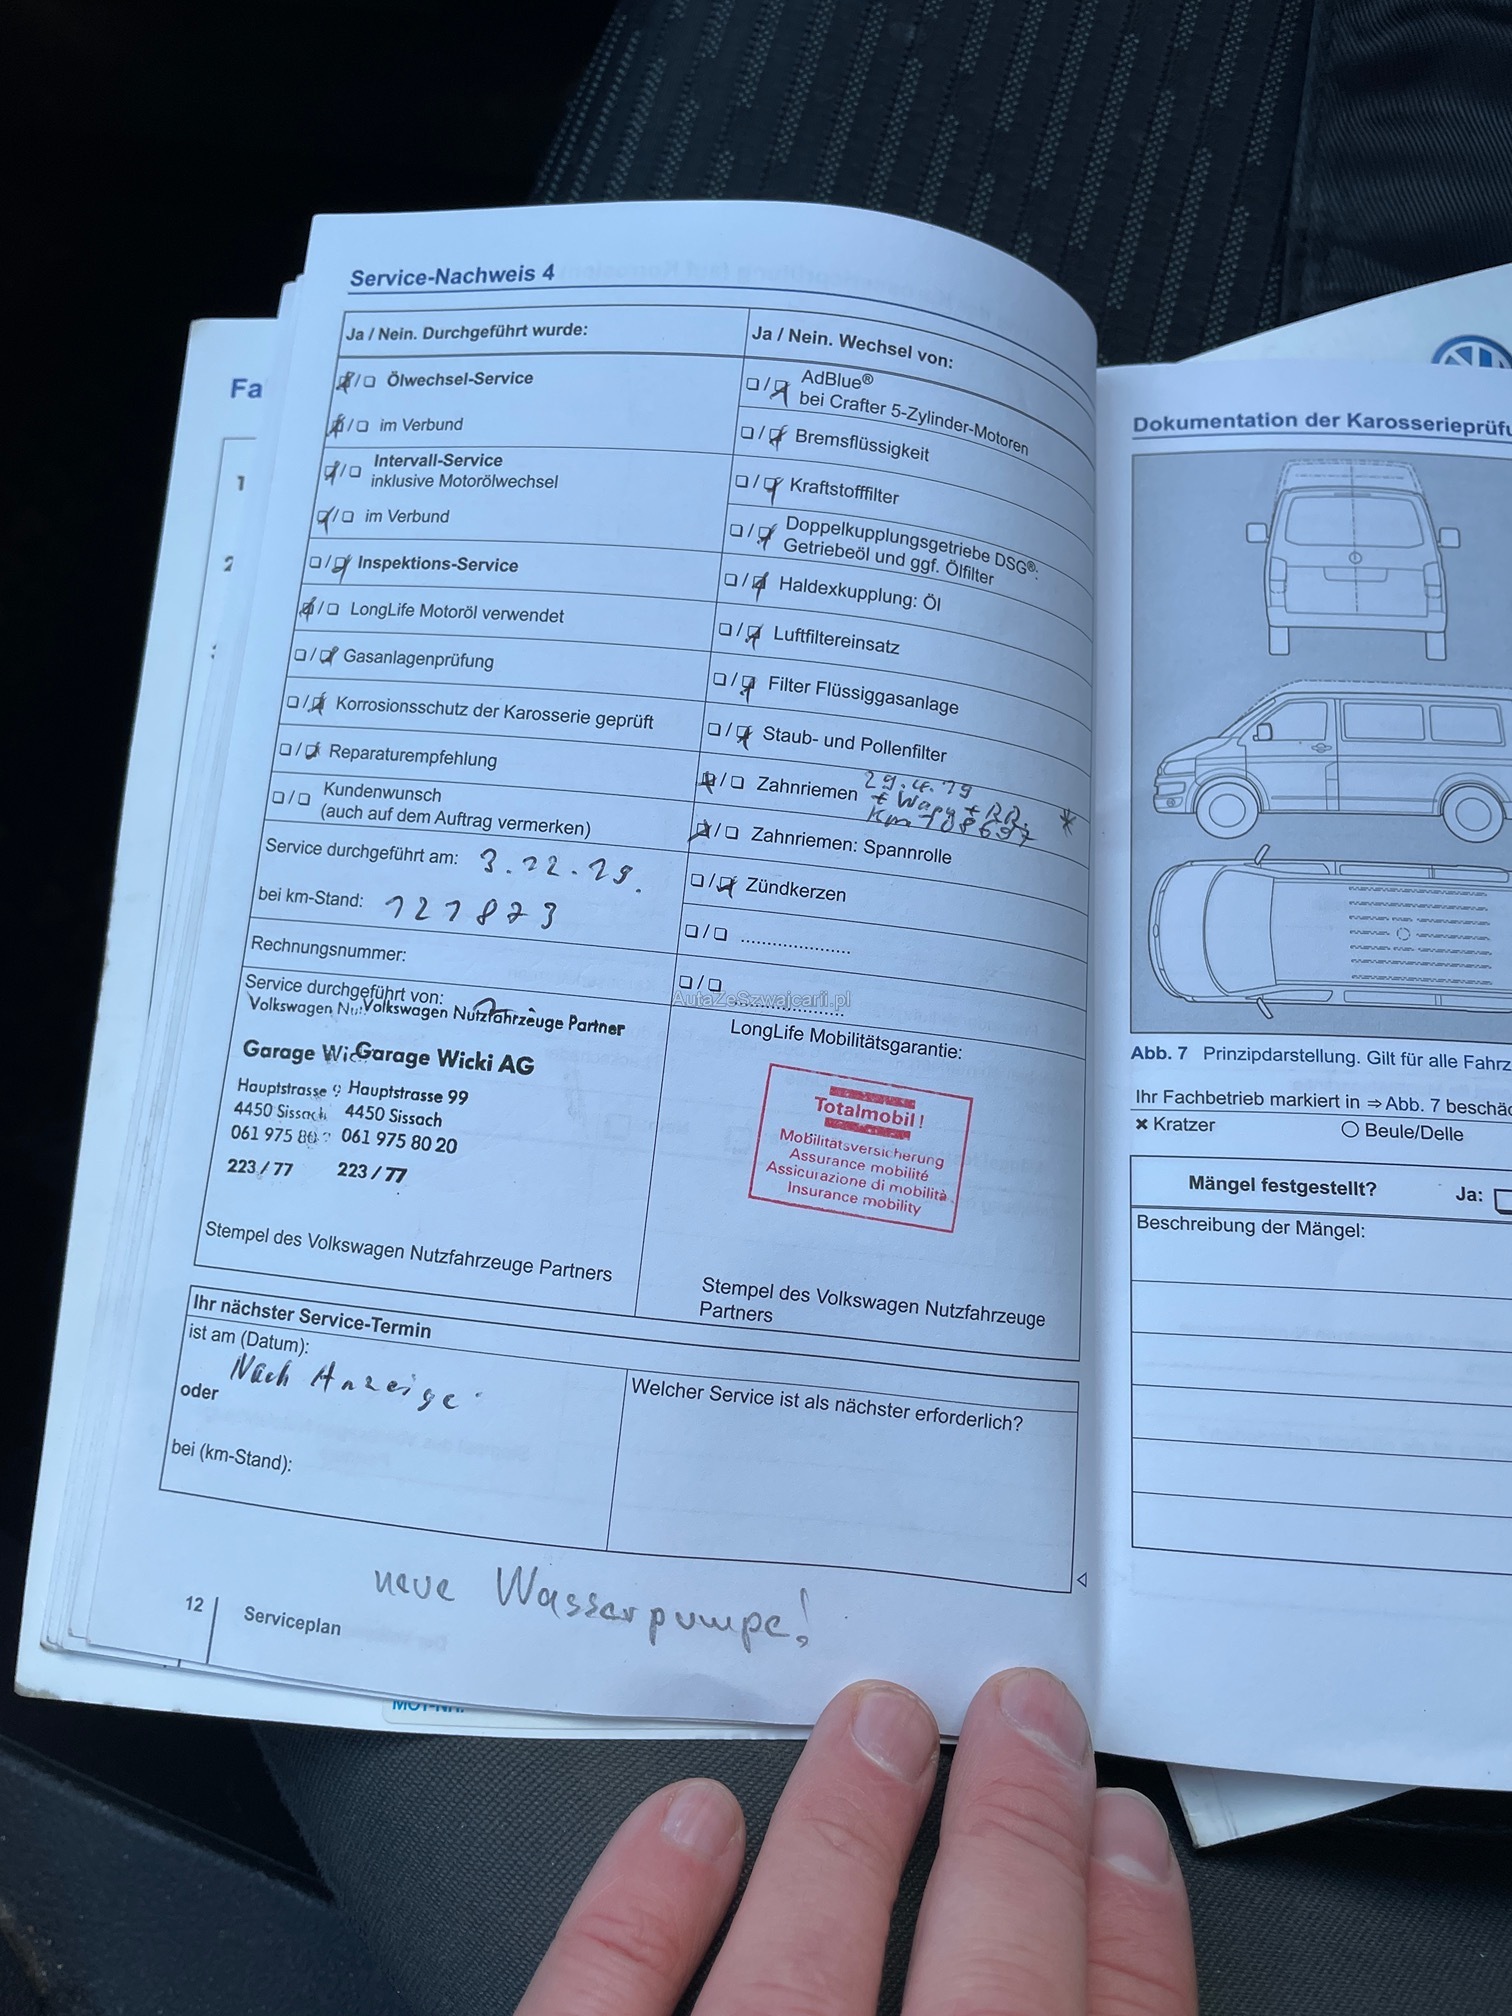 Service-Nachweis 4
Ja / Nein. Durchgeführt wurde:
❏/❏ Ölwechsel-Service
❏/❏ im Verbund
❏/❏ Intervall-Service
inklusive Motorölwechsel
❏/❏ im Verbund
❏/❏ Inspektions-Service
❏/❏ LongLife Motoröl verwendet
❏/❏ Gasanlagenprüfung
❏/❏ Korrosionsschutz der Karosserie geprüft
❏/❏ Reparaturempfehlung
❏/❏ Kundenwunsch
(auch auf dem Auftrag vermerken)
Service durchgeführt am: 3.12.19.
bei km-Stand: 121873
Rechnungsnummer:
Service durchgeführt von:
Volkswagen Nutzfahrzeuge Partner
Garage Wicki AG
Hauptstrasse 99
4450 Sissach
061 975 80 20
223/77 223/77
Stempel des Volkswagen Nutzfahrzeuge Partners
Ja / Nein. Wechsel von:
❏/❏ AdBlue®
bei Crafter 5-Zylinder-Motoren
❏/❏ Bremsflüssigkeit
❏/❏ Kraftstofffilter
❏/❏ Doppelkupplungsgetriebe DSG®:
Getriebeöl und ggf. Ölfilter
❏/❏ Haldexkupplung: Öl
❏/❏ Luftfiltereinsatz
❏/❏ Filter Flüssiggasanlage
❏/❏ Staub- und Pollenfilter
❏/❏ Zahnriemen 29.4.19
+ Wapu + RR. *
Km 108697
❏/❏ Zahnriemen: Spannrolle
❏/❏ Zündkerzen
❏/❏ ....................
❏/❏ ....................
AutaZeSzwajcarii.pl
LongLife Mobilitätsgarantie:
Totalmobil!
Mobilitätsversicherung
Assurance mobilité
Assicurazione di mobilità
Insurance mobility
Stempel des Volkswagen Nutzfahrzeuge
Partners
Ihr nächster Service-Termin
ist am (Datum):
Nach Anzeige
oder
bei (km-Stand):
Welcher Service ist als nächster erforderlich?
neue Wasserpumpe!
12 Serviceplan
Fa
1
2
Dokumentation der Karosserieprüfu
Abb. 7 Prinzipdarstellung. Gilt für alle Fahrz
Ihr Fachbetrieb markiert in ⇒ Abb. 7 beschäd
× Kratzer ○ Beule/Delle
Mängel festgestellt? Ja:
Beschreibung der Mängel: